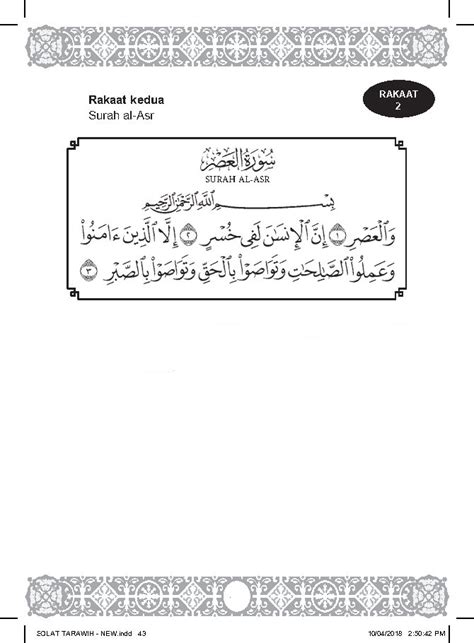 Rakaat kedua
Surah al-Asr
RAKAAT
2
سُورَةُ الْعَصْرِ
SURAH AL-ASR
بِسْمِ اللَّهِ الرَّحْمَٰنِ الرَّحِيمِ
وَٱلْعَصْرِ ١ إِنَّ ٱلْإِنسَٰنَ لَفِى خُسْرٍ ٢ إِلَّا ٱلَّذِينَ ءَامَنُوا۟
وَعَمِلُوا۟ ٱلصَّٰلِحَٰتِ وَتَوَاصَوْا۟ بِٱلْحَقِّ وَتَوَاصَوْا۟ بِٱلصَّبْرِ ٣
SOLAT TARAWIH - NEW.indd 43
10/04/2018 2:50:42 PM